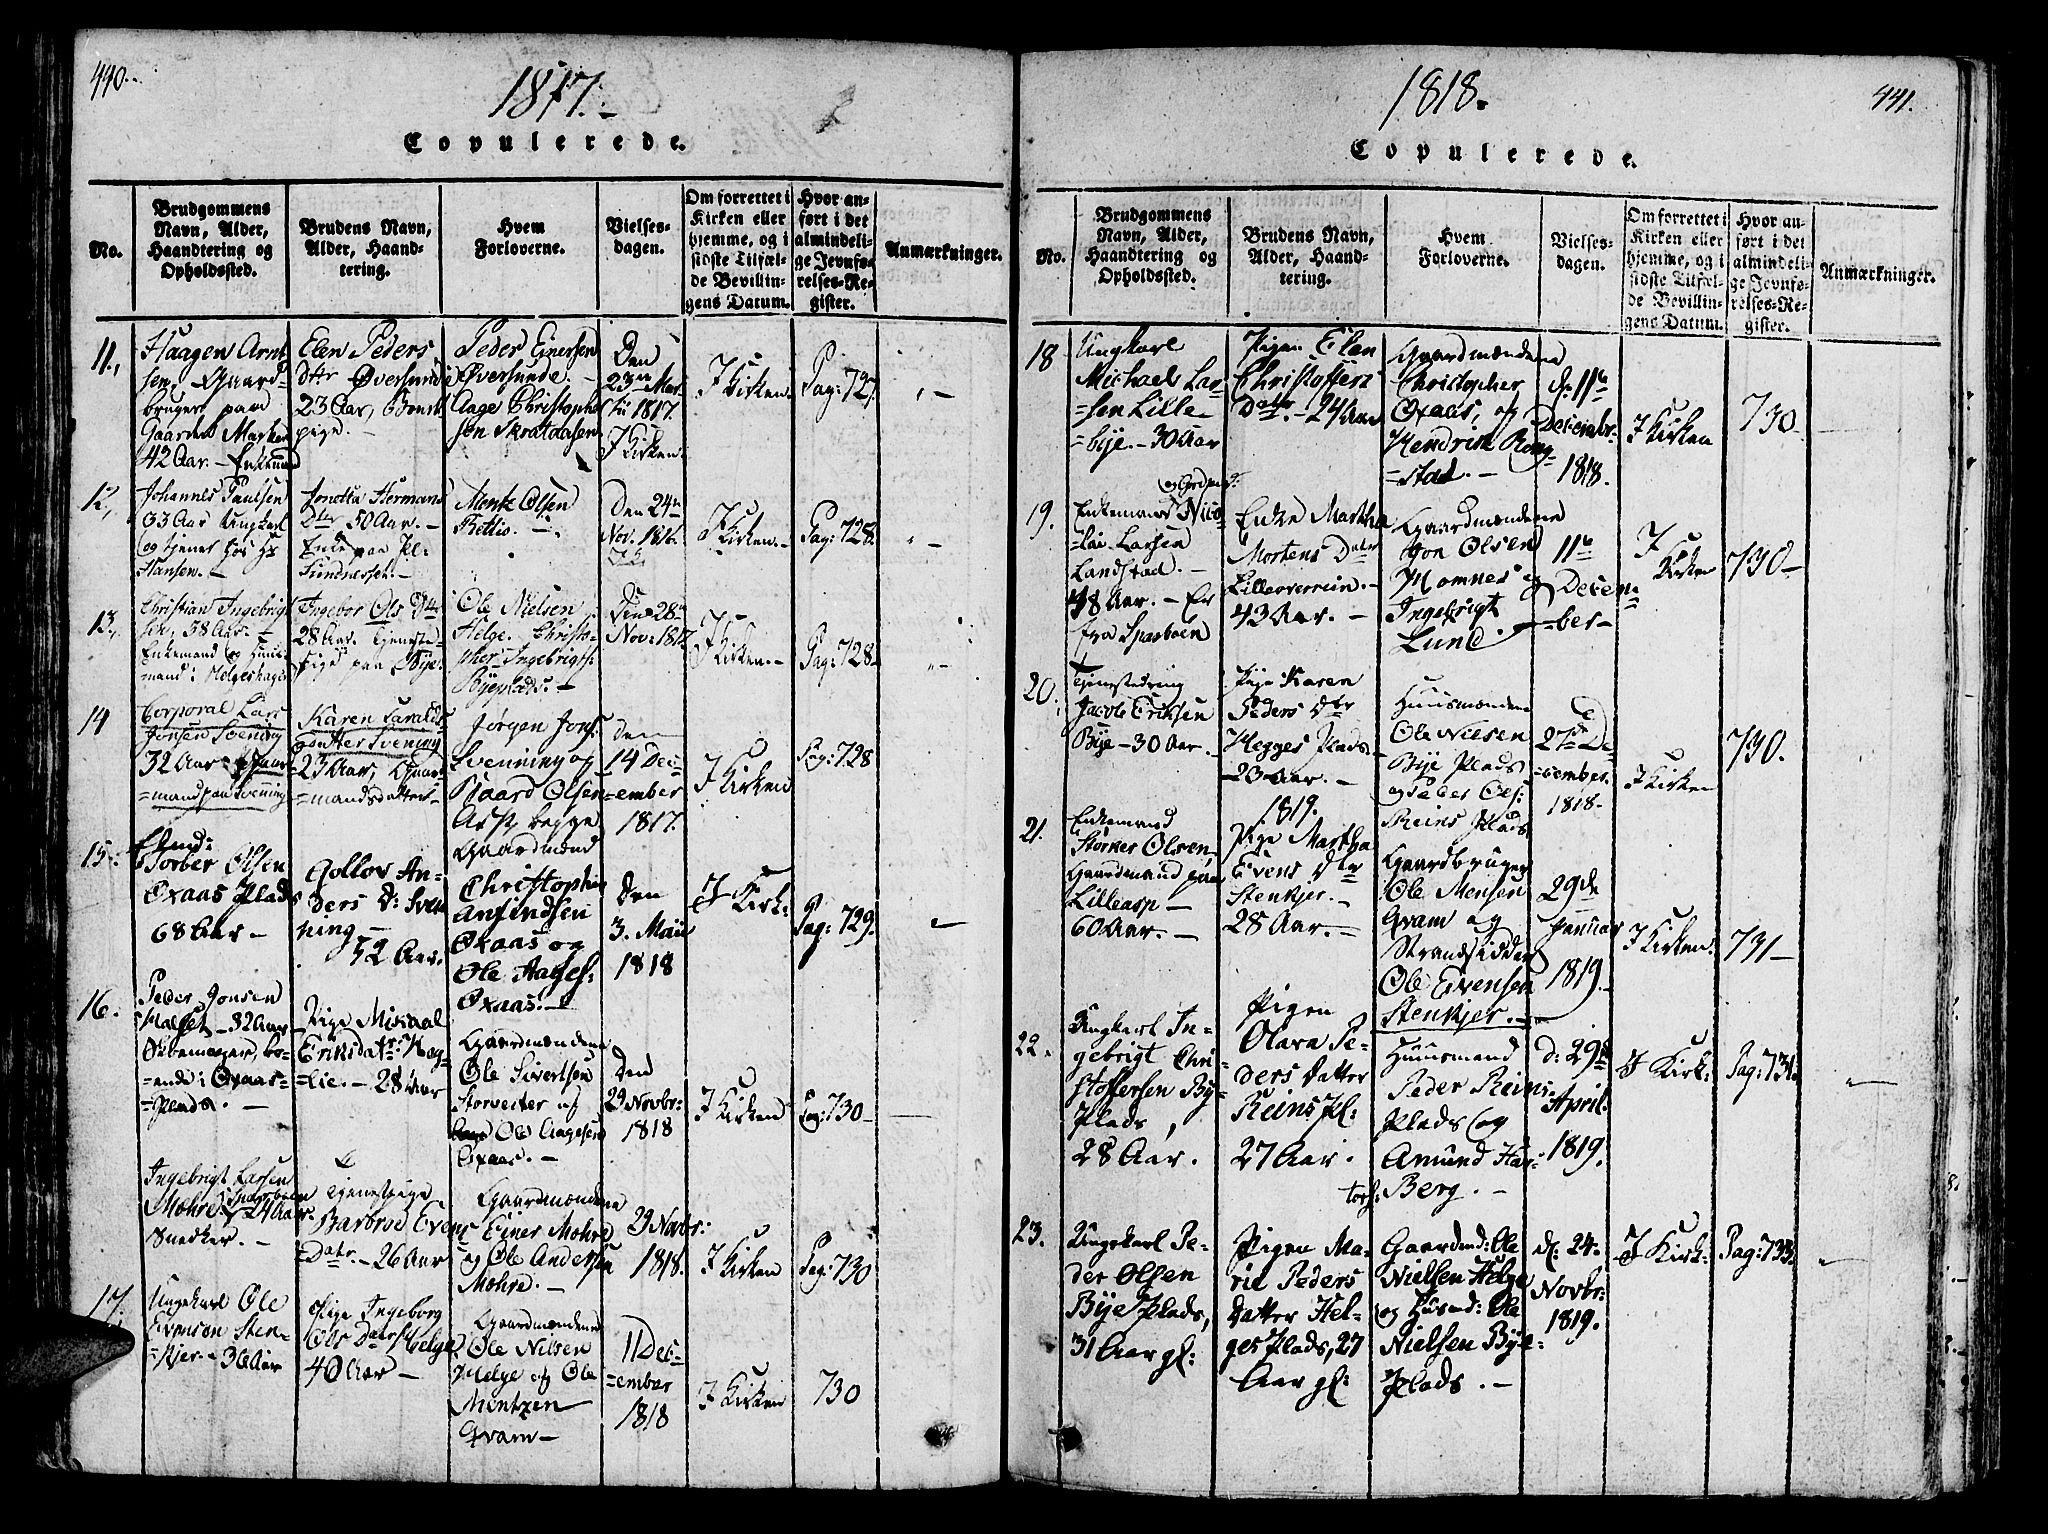 440.
1817.
Copulerede.
No.
Brudgommens
Navn, Alder,
Haandtering og
Opholdssted.
Brudens Navn,
Alder, Haand-
tering.
Hvem
Forloverne.
Vielses-
dagen.
Om forrettet i
Kirken eller
hjemme, og i
sidste Tilfæl-
de Bevillin-
gens Datum.
Hvor an-
ført i det
almindeli-
ge Jevnfø-
relses-Re-
gister.
Anmærkninger.
11,
Haagen Arnt
sen, Gaard-
bruger paa
Gaarden
42 Aar. Enkemand
Elen Peders
Dtr Øversunde
23 Aar,
pige.
Peder Einersen
Øversunde.
Aage Christoph
sen Skrataasen
Den
23de Mar-
tii 1817.
I Kirken.
I Kirken.
Pag: 727.
12,
Johannes Paulsen
33 Aar Ungkarl
og tjener hos Hs
Hansen.
Hermans
Dtr 50 Aar.
Enke paa Pl:
Sundnessett
Olsen
Den 24de
Nov. 1816.
I Kirken.
Pag: 728.
13,
Christian Ingebrigt
sen, 38 Aar.
Enkemand og Huus-
mand i Helgeshage
Ingebor Ols Dtr
28 Aar. Tjeneste
Pige paa Bye.
Ole Nielsen
Helge. Christo-
pher Ingebrigts:
Byeplads.
Den 28de
Nov: 1817.
I Kirken.
Pag: 728
14
Corporal Lars
Jonsen Svening
32 Aar Gaar-
mand paa Svening
Karen
datter Svening
23 Aar, Gaar-
mandsdatter
Jørgen Jons.
Svenning og
Baard Olsen
Asp, begge
Gaardmænd
Den
14 Dec-
ember
1817.
I Kirken
Pag: 728
15.
Torber Olsen
Oxaas Plads
68 Aar
Gollov An-
ders D: Sven
ning
52 Aar.
Christopher
Anfindsen
Oxaas og
Ole Aages:
Oxaas.
Den
3. Maii
1818
I Kirk:
Pag: 729.
16.
Peder Jonsen
Halset 32 Aar
Skomager, bo-
ende i Oxaas-
Plads.
Pige
Eriksdatr:
28 Aar
Gaardmændene
Ole Sivertsen
Storveiter og
Ole Aagesen
Oxaas.
Den
29 Novbr:
1818
I Kirken
Pag: 730
Ingebrigt Larsen
Mohre Sparboen
24 Aar.
Snedker.
Tjenestpige
Barbroe Evens
Datr. 26 Aar
Gaardmændene
Einer Mohre
og Ole Andersen
Mohre.
29 Novbr:
1818.
I Kirken
Pag: 730
17.
Ungekarl Ole
Evenson Sten-
kjer 36 Aar
Pige Ingeborg
Ols Datr Helge
40 Aar
Gaardmændene
Ole Nilsen
Helge og Ole
Mentzen
Qvam
11 Dec-
ember
1818
I Kirken
730
441.
1818.
Copulerede.
No.
Brudgommens
Navn, Alder,
Haandtering og
Opholdssted.
Brudens Navn,
Alder, Haand-
tering.
Hvem
Forloverne.
Vielses-
dagen.
Om forrettet i
Kirken eller
hjemme, og i
sidste Tilfæl-
de Bevillin-
gens Datum.
Hvor an-
ført i det
almindeli-
ge Jevnfø-
relses-Re-
gister.
Anmærkninger.
18
Ungkarl
Michael Lar-
sen Lille-
bye 30 Aar
Pigen Elen
Christoffers
Datr. 24 Aar
Gaardmændene
Christopher
Oxaas, og
Hendrik Rong-
stad.
d. 11te
Decembr.
1818.
I Kirken
730
19.
Enkemand Nico-
lai Larsen
Landstad.
48 Aar. Er
fra Sparboen
Enke Martha
Mortens Datr
Lilleoverrein.
43 Aar.
Gaardmændene
Jon Olsen
Momnes og
Ingebrigt
Lund.
11te
Decem-
ber
I
Kirken
730
20.
Tjenestedreng
Jacob Eriksen
Bye 30 Aar.
Pige Karen
Peders Dtr
Hegges Plads
23 Aar.
Huusmændene
Ole Nilsen
Bye Plads
og Peder Ols:
Reins Plads
27de De-
cember
1818
I Kirken
730.
1819.
21.
Enkemand
Størker Olsen,
Gaardmand paa
Lilleasp
60 Aar.
Pige Martha
Evens Dtr
Stenkjer.
28 Aar.
Gaardbruger
Ole Mensen
Qvam og
Strandsidder
Ole Evensen
Stenkjer.
29de
Januar
1819.
I Kirken.
731
22.
Ungkarl In-
gebrigt Chri-
stoffersen Bye-
Plads,
28 Aar.
Pigen
Olava Pe-
ders Datter
Reins Pl:
27 Aar.
Huusmand
Peder Reins-
Plads og
Amund Har-
Berg.
d: 29de
April.
1819.
I Kirk:
Pag: 731.
23.
Ungekarl Pe-
der Olsen
Bye Plads,
31 Aar gl:
Pigen Ma-
rie Peders
Datter Hel-
ges Plads, 27
Aar gl:
Gaardmd: Ole
Nielsen Helge
og Husmd: Ole
Nielsen Bye-
Plads.
d. 24.
Novbr:
1819.
I Kirk:
Pag: 733.